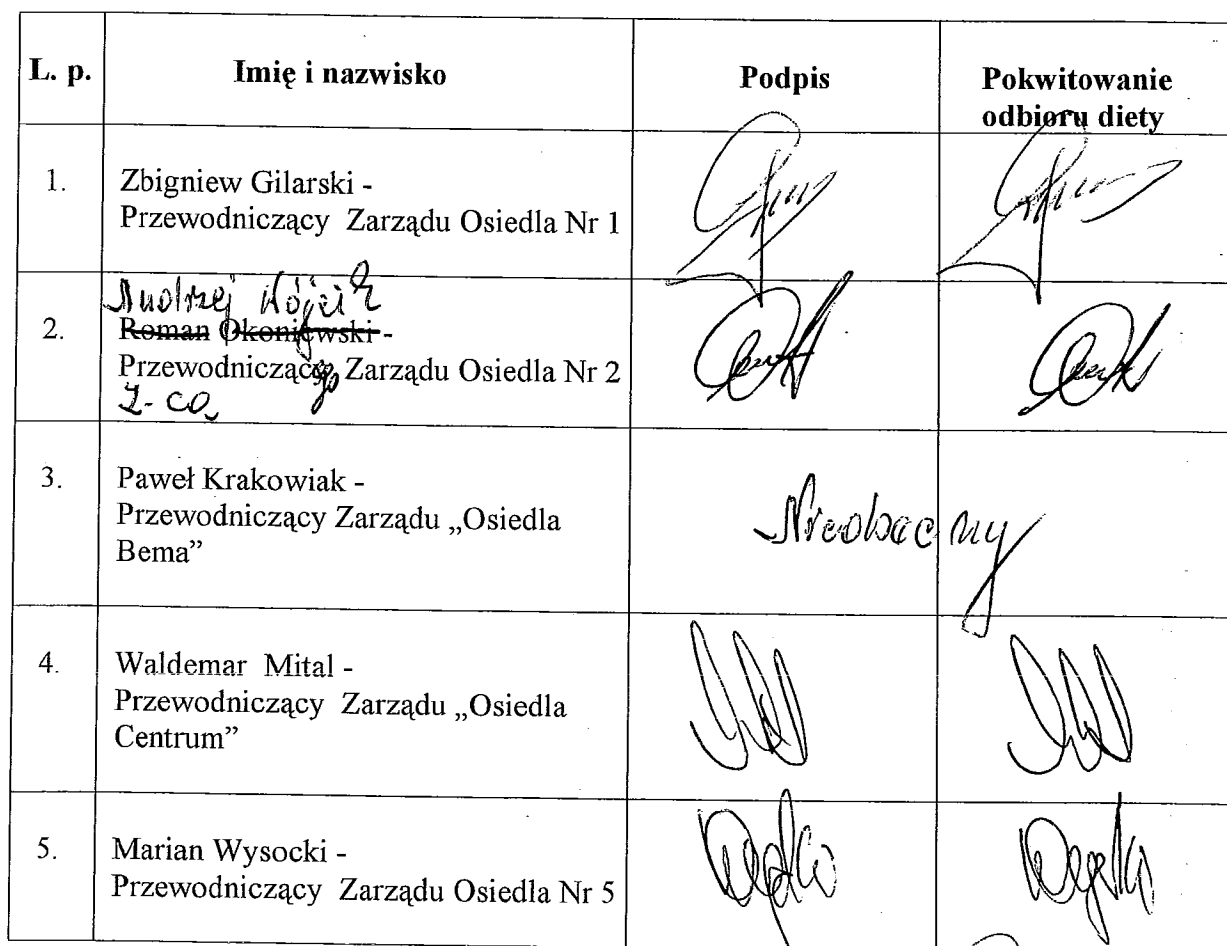 L. p. Imię i nazwisko Podpis Pokwitowanie
odbioru diety
1. Zbigniew Gilarski -
Przewodniczący Zarządu Osiedla Nr 1
Andrzej Wójcik
2. Roman Okoniewski -
Przewodniczącego Zarządu Osiedla Nr 2
Z-ca
3. Paweł Krakowiak -
Przewodniczący Zarządu „Osiedla
Bema”
Nieobecny
4. Waldemar Mital -
Przewodniczący Zarządu „Osiedla
Centrum”
5. Marian Wysocki -
Przewodniczący Zarządu Osiedla Nr 5